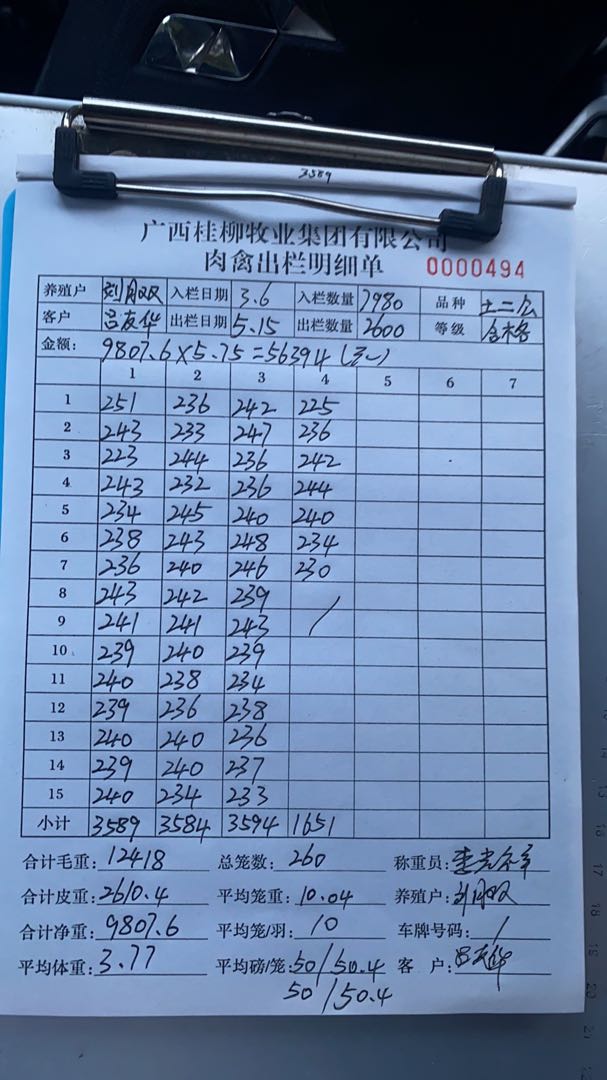 3589
广西桂柳牧业集团有限公司
肉禽出栏明细单 0000494
养殖户 刘月双 入栏日期 3.6 入栏数量 7980 品种 土二公
客户 吕友华 出栏日期 5.15 出栏数量 2600 等级 合格
金额: 9807.6×5.75=56394
1 2 3 4 5 6 7
1 251 236 242 225
2 243 233 247 236
3 223 244 236 242
4 243 232 236 244
5 234 245 240 240
6 238 243 248 234
7 236 240 246 230
8 243 242 239 /
9 241 241 243
10 239 240 239
11 240 238 234
12 239 236 238
13 240 240 236
14 239 240 237
15 240 234 233
小计 3589 3584 3594 1651
合计毛重: 12418 总笼数: 260 称重员:
合计皮重: 2610.4 平均笼重: 10.04 养殖户: 刘月双
合计净重: 9807.6 平均笼/羽: 10 车牌号码: /
平均体重: 3.77 平均磅/笼: 50/50.4 客 户: 吕友华
50/50.4